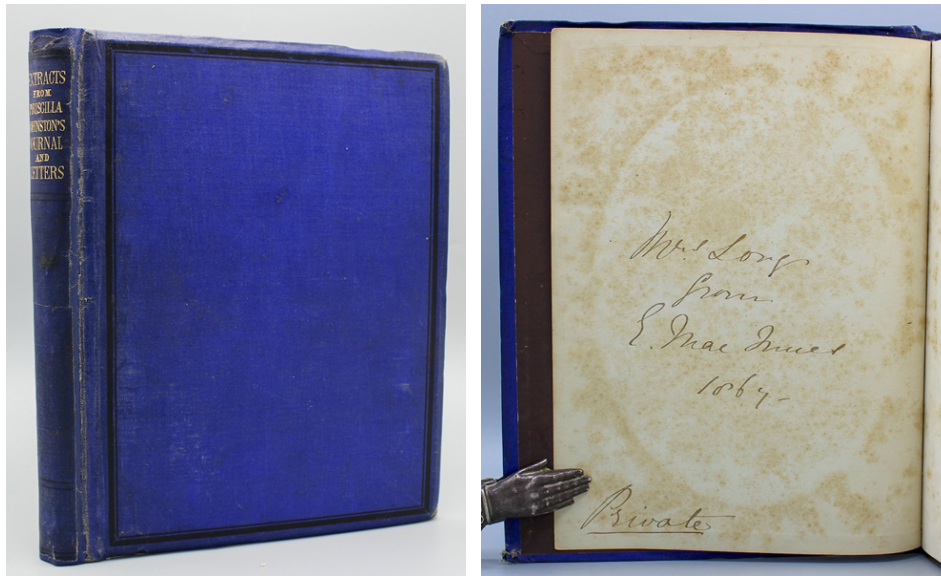 EXTRACTS
FROM
PRISCILLA
JOHNSTON'S
JOURNAL
AND
LETTERS
Mrs Long
from
E. Mac Innes
1867-
Private